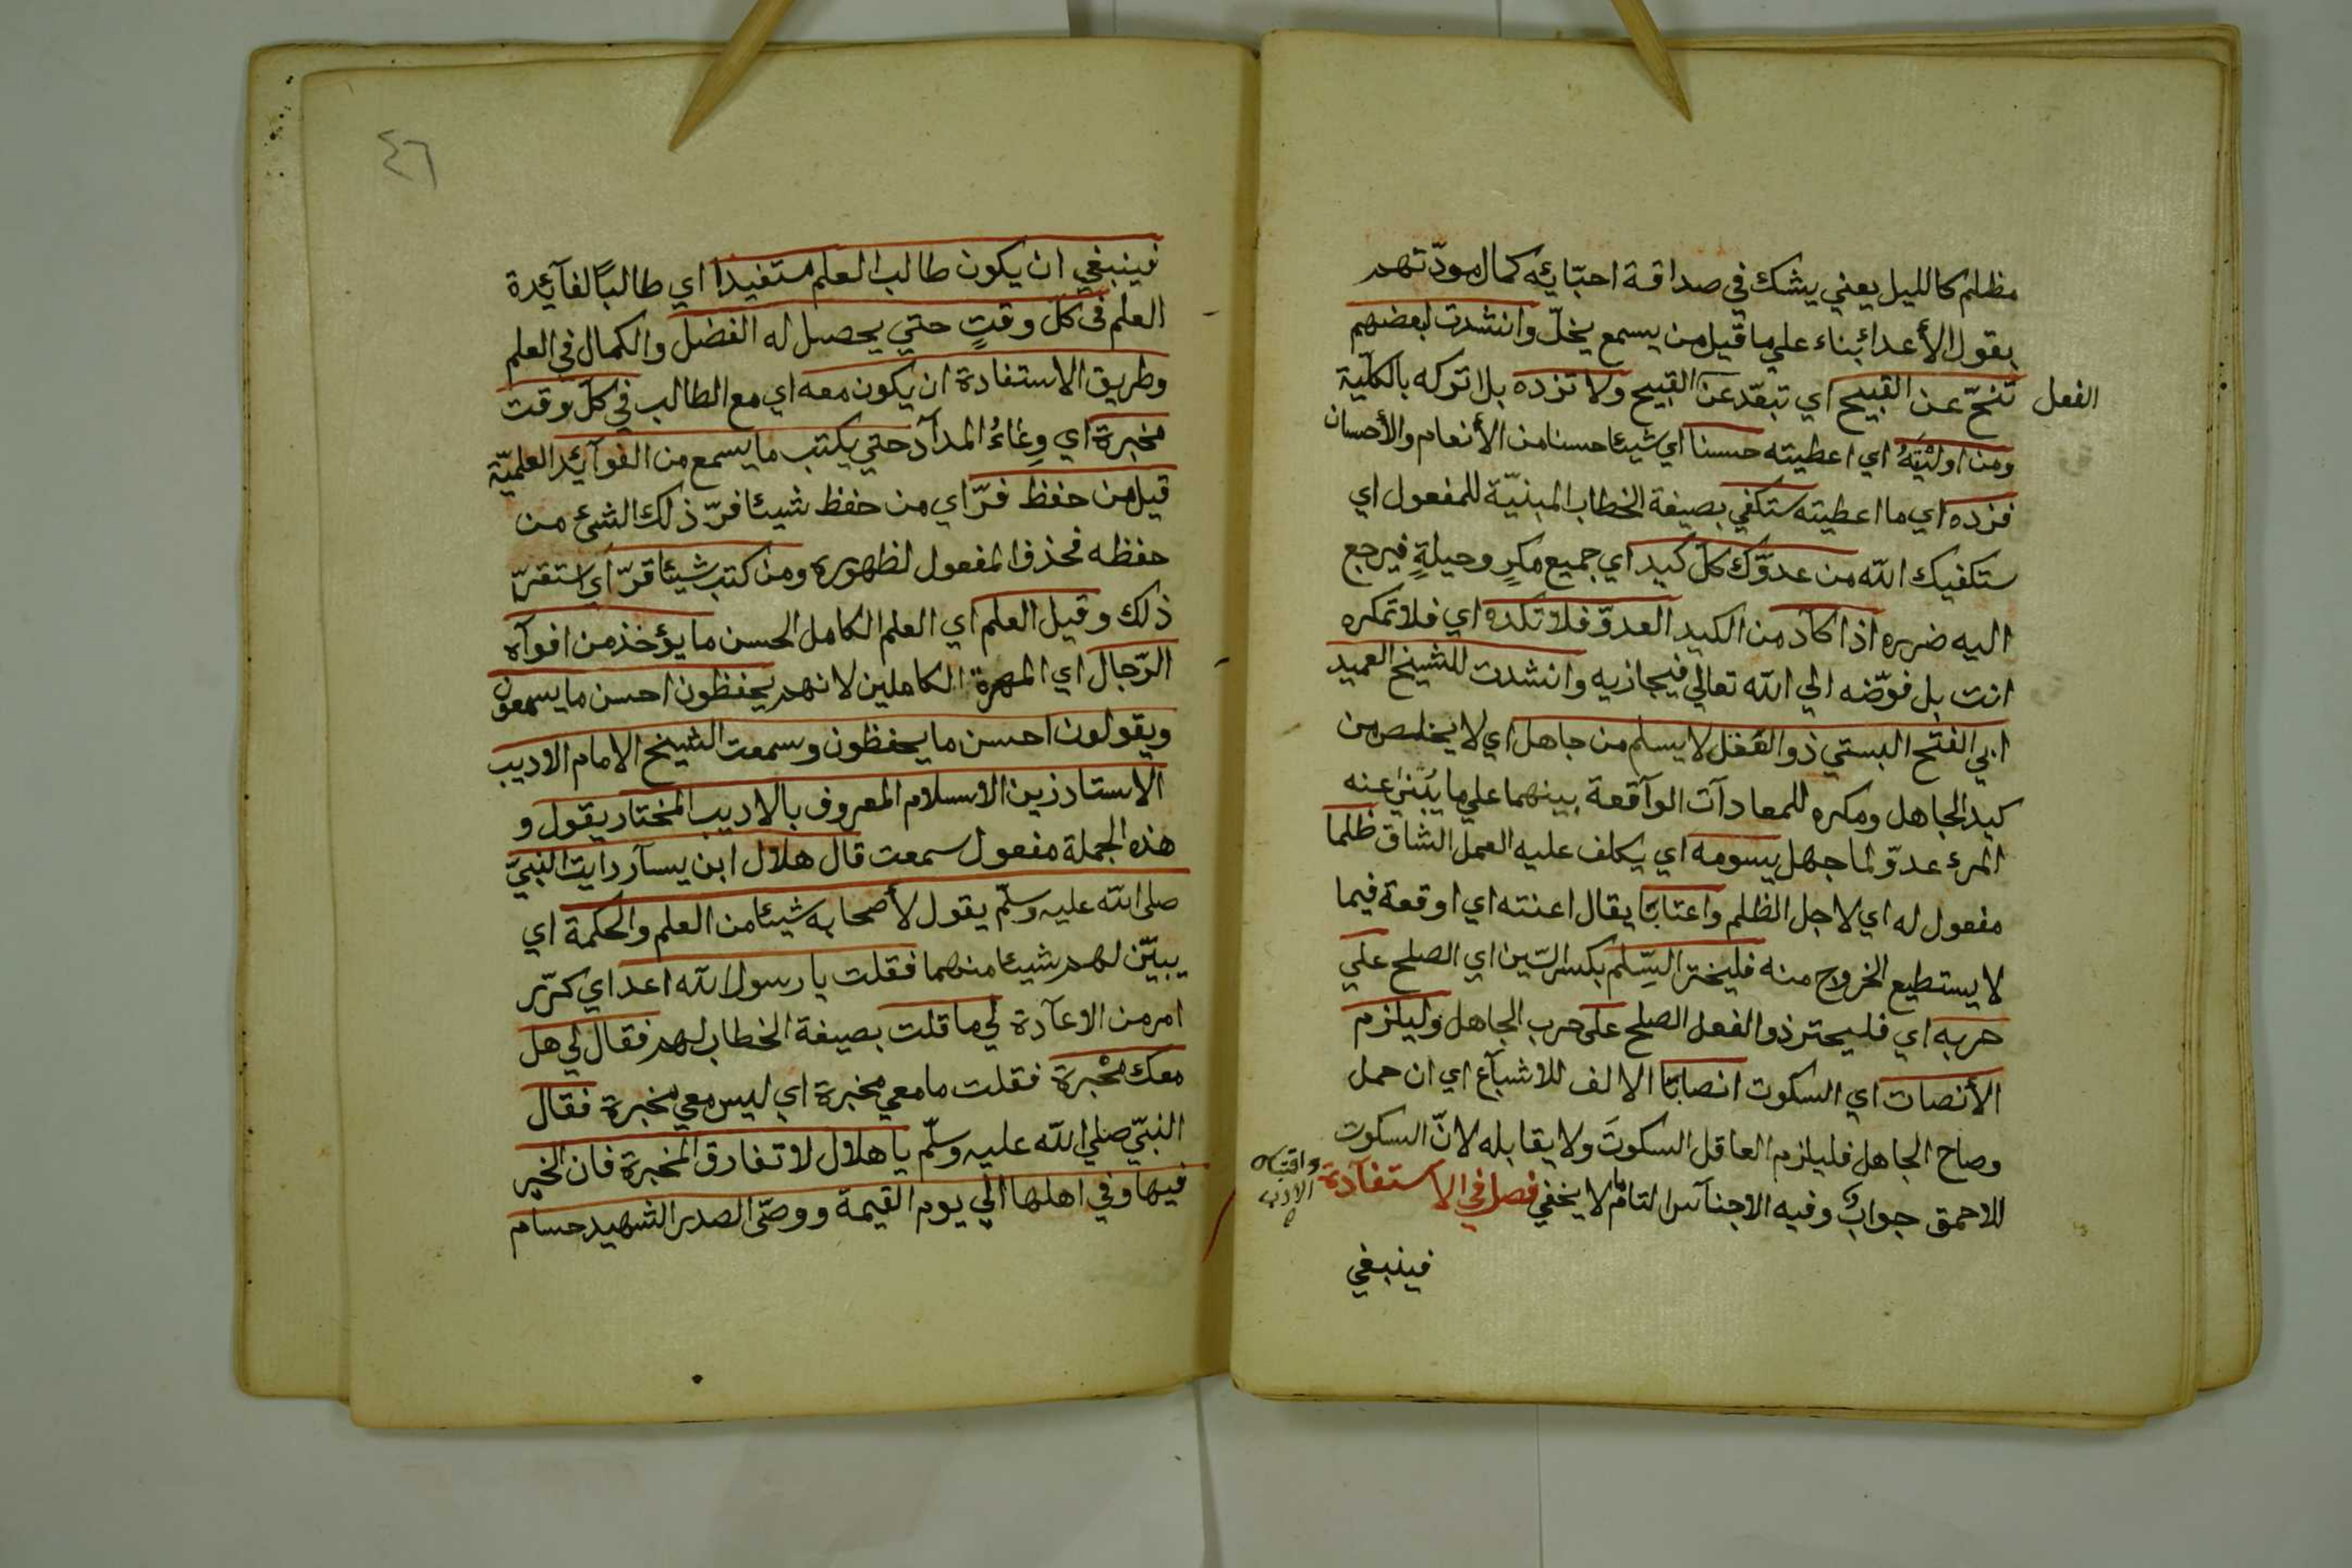 مظلم كالليل يعني يشك في صداقة احبّايئه كمال مودّتهم
بقول الأعدائبناء علي ما قيل من يسمع يخلّ وانشدت لبعضهم
تنحّ عن القبيح اي تبعّد عن القبيح ولا تزده بل اتركه بالكلّية
الفعل
ومن اوليْتَهُ اي اعطيته حسنا اي شيئا حسنا من الأنعام والأحسان
فزده اي ما اعطيته ستكفي بصيغة الخطاب المبنيّة للمفعول اي
ستكفيك الله من عدوّك كلّ كيد اي جميع مكرٍ وحيلةٍ فيرجع
اليه ضرره اذا كاد من الكيد العدوّ فلا تكده اي فلا تمكره
انت بل فوّضه الي الله تعالي فيجازيه وانشدت للشيخ العميد
ابي الفتح البستي ذو العقل لا يسلم من جاهل اي لا يخلص من
كيد الجاهل ومكره للمعادآت الوآقعة بينهما علي ما يُبْنئ عنه
المرء عدوّ لما جهل يسومه اي يكلف عليه العمل الشاق ظلما
مفعول له اي لاجل الظلم واعناتا يقال اعنته اي اوقعة فيما
لا يستطيع الخروج منه فليختر السِّلم بكسر السّين اي الصلح علي
حربه اي فليحترز ذو الفعل الصلح على حرب الجاهل وليلزم
الأنصات اي السكوت انصاتا الالف للاشبآع اي ان حمل
وصاح الجاهل فليلزم العاقل السكوتَ ولا يقابله لانّ السكوت
للاحمق جوابٌ وفيه الاجنآس التامّ لا يخفي فصل في الاستفآدة
واقتباس
الادب
فينبغي
٤٦
فينبغي ان يكون طالب العلم مستفيدا اي طالبًا لفآيُدة
العلم في كلّ وقتٍ حتي يحصل له الفضل والكمال في العلم
وطريق الاستفادة ان يكون معه اي مع الطالب في كلّ وقت
مخبرة اي وِعَاءُ المدآد حتي يكتب ما يسمع من الفوآيُد العلميّة
قيل من حفظ فرّ اي من حفظ شيئا فرّ ذلك الشئ من
حفظه فحذف المفعول لظهوره ومن كتب شيئا قرّ اي استقرّ
ذلك وقيل العلم اي العلم الكامل الحسن ما يؤخذ من افوآه
الرّجال اي المهرة الكاملين لانهم يحفظون احسن ما يسمعون
ويقولون احسن ما يحفظون وسمعت الشيخ الامام الاديب
الاستاد زين الاسلام المعروف بالاديب المختار يقول و
هذه الجملة مفعول سمعت قال هلال ابن يسآر رايت النبيّ
صلى الله عليه وسلّم يقول لأصحابه شيئا من العلم والحكمة اي
يبيّن لهم شيئا منهما فقلت يا رسول الله اعد اي كرّر
امر من الاعآدة لي ما قلت بصيغة الخطاب لهم فقال لي هل
معك مخْبرة فقلت ما معي مخبرة اي ليس معي مخبرة فقال
النبيّ صلي الله عليه وسلّم يا هلال لا تفارق المخبرة فان الخير
فيها وفي اهلها الي يوم القيمة ووصّى الصدر الشهيد حسام